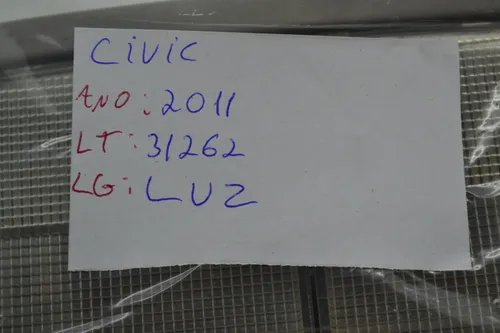 Civic
ANO: 2011
LT: 31262
LG: LUZ